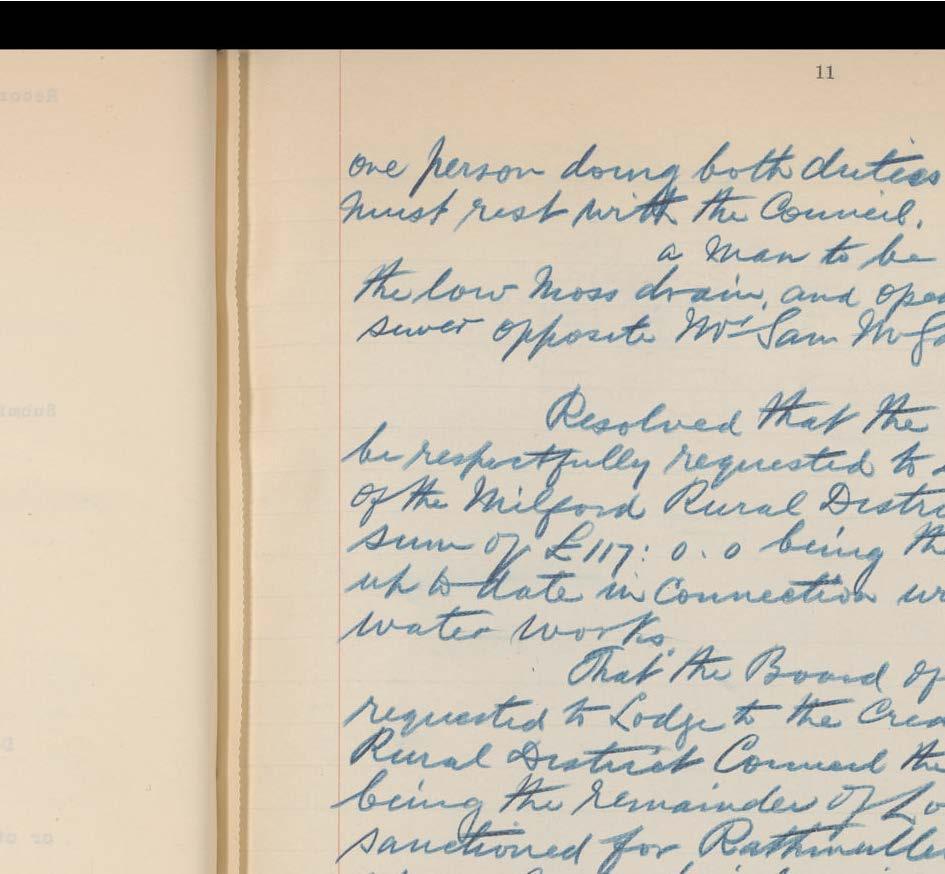 11
one person doing both duties
must rest with the Council.
a man to be
the low Moss drain, and open
sewer opposite Mr Sam McGa
Resolved that the
be respectfully requested to
of the Milford Rural Distri
sum of £117: 0. 0 being th
up to date in connection wi
water works.
That the Board of
requested to Lodge to the Cred
Rural District Council the
being the remainder of Lo
sanctioned for Rathmullen